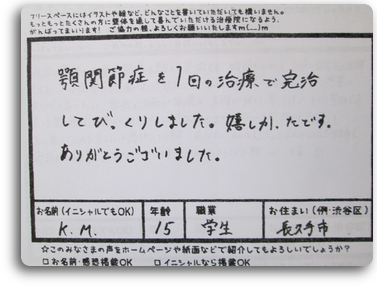 フリースペースにはイラストや絵など、どんなことを書いていただいても構いません。
もっともっとたくさんの方に整体を通して喜んでいただける治療院になるよう、
がんばってまいります! ご協力の程、よろしくお願いいたしますm(__)m
顎関節症を1回の治療で完治
してびっくりしました。嬉しかったです。
ありがとうございました。
お名前(イニシャルでもOK) 年齢 職業 お住まい(例:渋谷区)
K.M. 15 学生 長久手市
☆このみなさまの声をホームページや紙面などで紹介してもよろしいでしょうか?
□お名前・感想掲載OK □イニシャルなら掲載OK